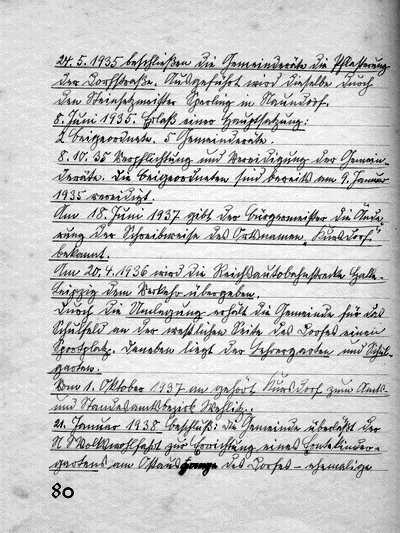 24.5.1935 beschließen die Gemeinderäte die Pflasterung
der Dorfstraße. Ausgeführt wird dieselbe durch
den Steinsetzmeister Sperling in Naundorf.
8. Juni 1935. Erlaß einer Hauptsatzung:
2 Beigeordnete. 5 Gemeinderäte.
8.10.35 Verpflichtung und Vereidigung der Gemein-
deräte. Die Beigeordneten sind bereits am 9. Januar
1935 vereidigt.
Am 18. Juni 1937 gibt der Bürgermeister die Ände
rung der Schreibweise des Ortsnamen „Kursdorf"
bekannt.
Am 20.4.1936 wird die Reichsautobahnstrecke Halle-
Leipzig dem Verkehr übergeben.
Durch die Umlegung erhält die Gemeinde für das
Schulfeld an der westlichen Seite des Dorfes einen
Sportplatz. Daneben liegt der Lehrergarten und Schul-
garten.
Vom 1. Oktober 1937 an gehört Kursdorf zum Amts-
und Standesamtsbezirk Wehlitz.
21. Januar 1938 Beschluß: die Gemeinde überläßt der
NS Volkswohlfahrt zur Errichtung eines Erntekinder-
gartens am Ostausgange des Dorfes - ehemalige
80